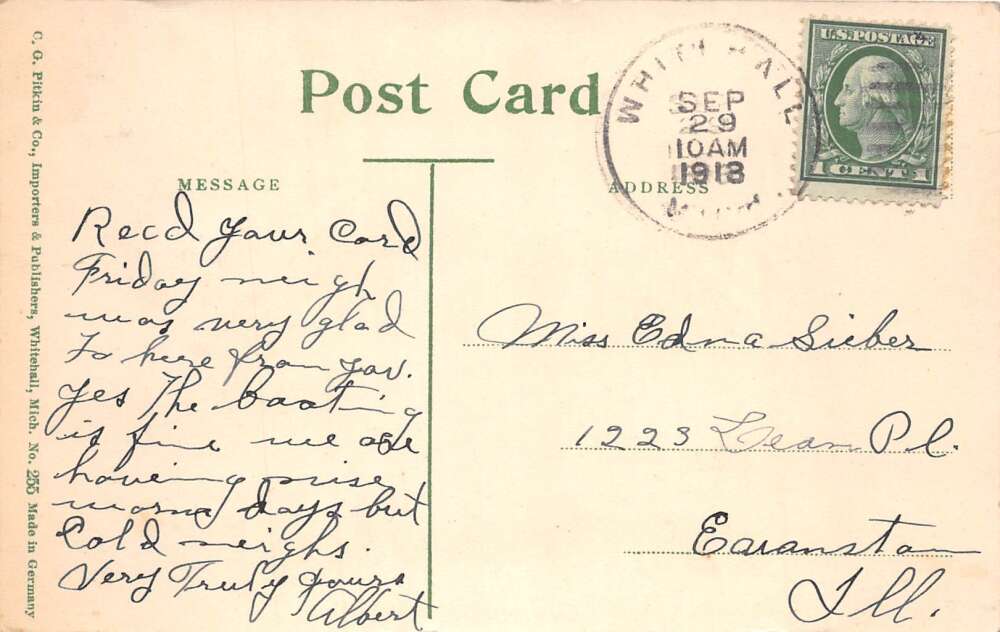 Post Card
WHITEHALL
SEP
29
10AM
1913
MICH.
U.S. POSTAGE
1 CENT 1
MESSAGE
ADDRESS
Recd your Card
Friday neigh
was very glad
to here from you.
yes The boating
is fine we are
haveing nise
warm days but
Cold neighs.
Very Truly yours
Albert
Miss Edna Sieber
1223 Pl.
Evanston
Ill.
C. G. Pitkin & Co., Importers & Publishers, Whitehall, Mich. No. 255 Made in Germany